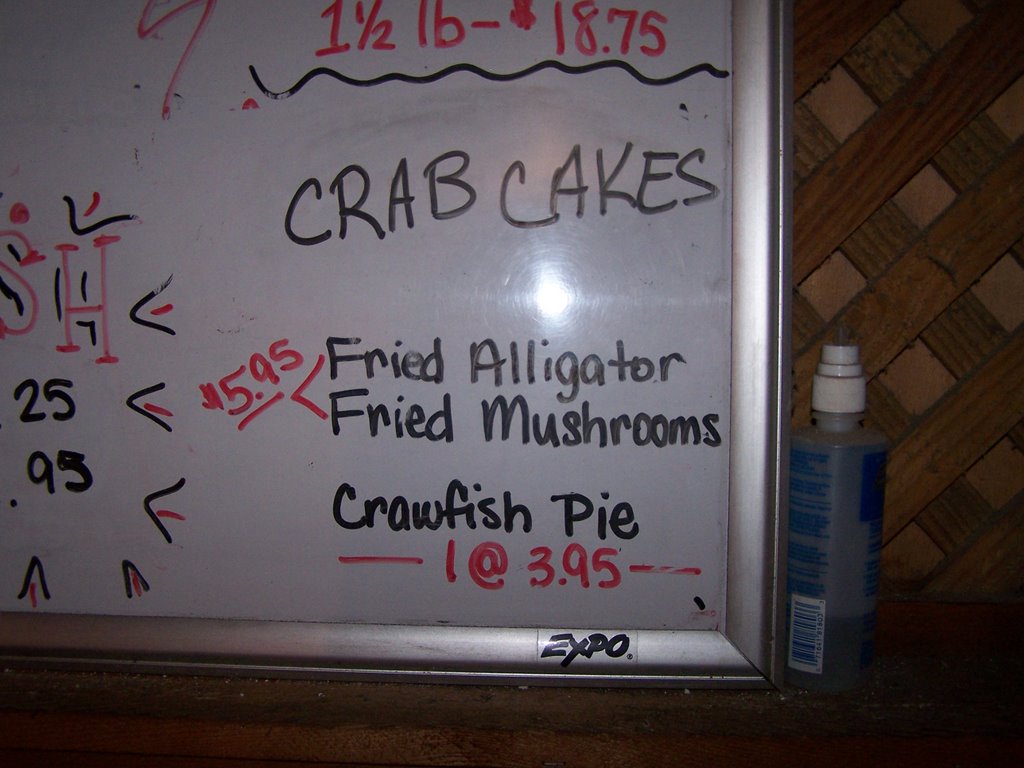 1½ lb - $18.75
CRAB CAKES
SH
Fried Alligator
$5.95
Fried Mushrooms
.25
.95
Crawfish Pie
1 @ 3.95
EXPO®